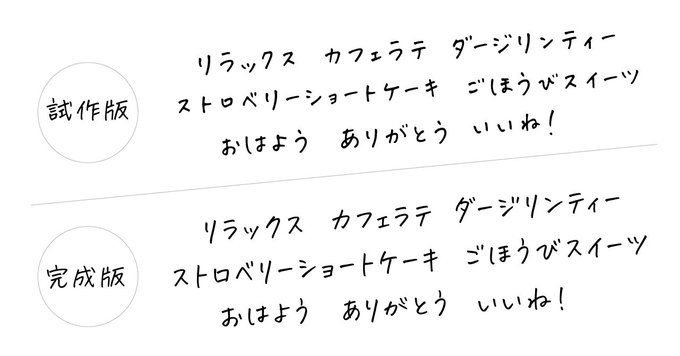 試作版
リラックス カフェラテ ダージリンティー
ストロベリーショートケーキ ごほうびスイーツ
おはよう ありがとう いいね!
完成版
リラックス カフェラテ ダージリンティー
ストロベリーショートケーキ ごほうびスイーツ
おはよう ありがとう いいね!